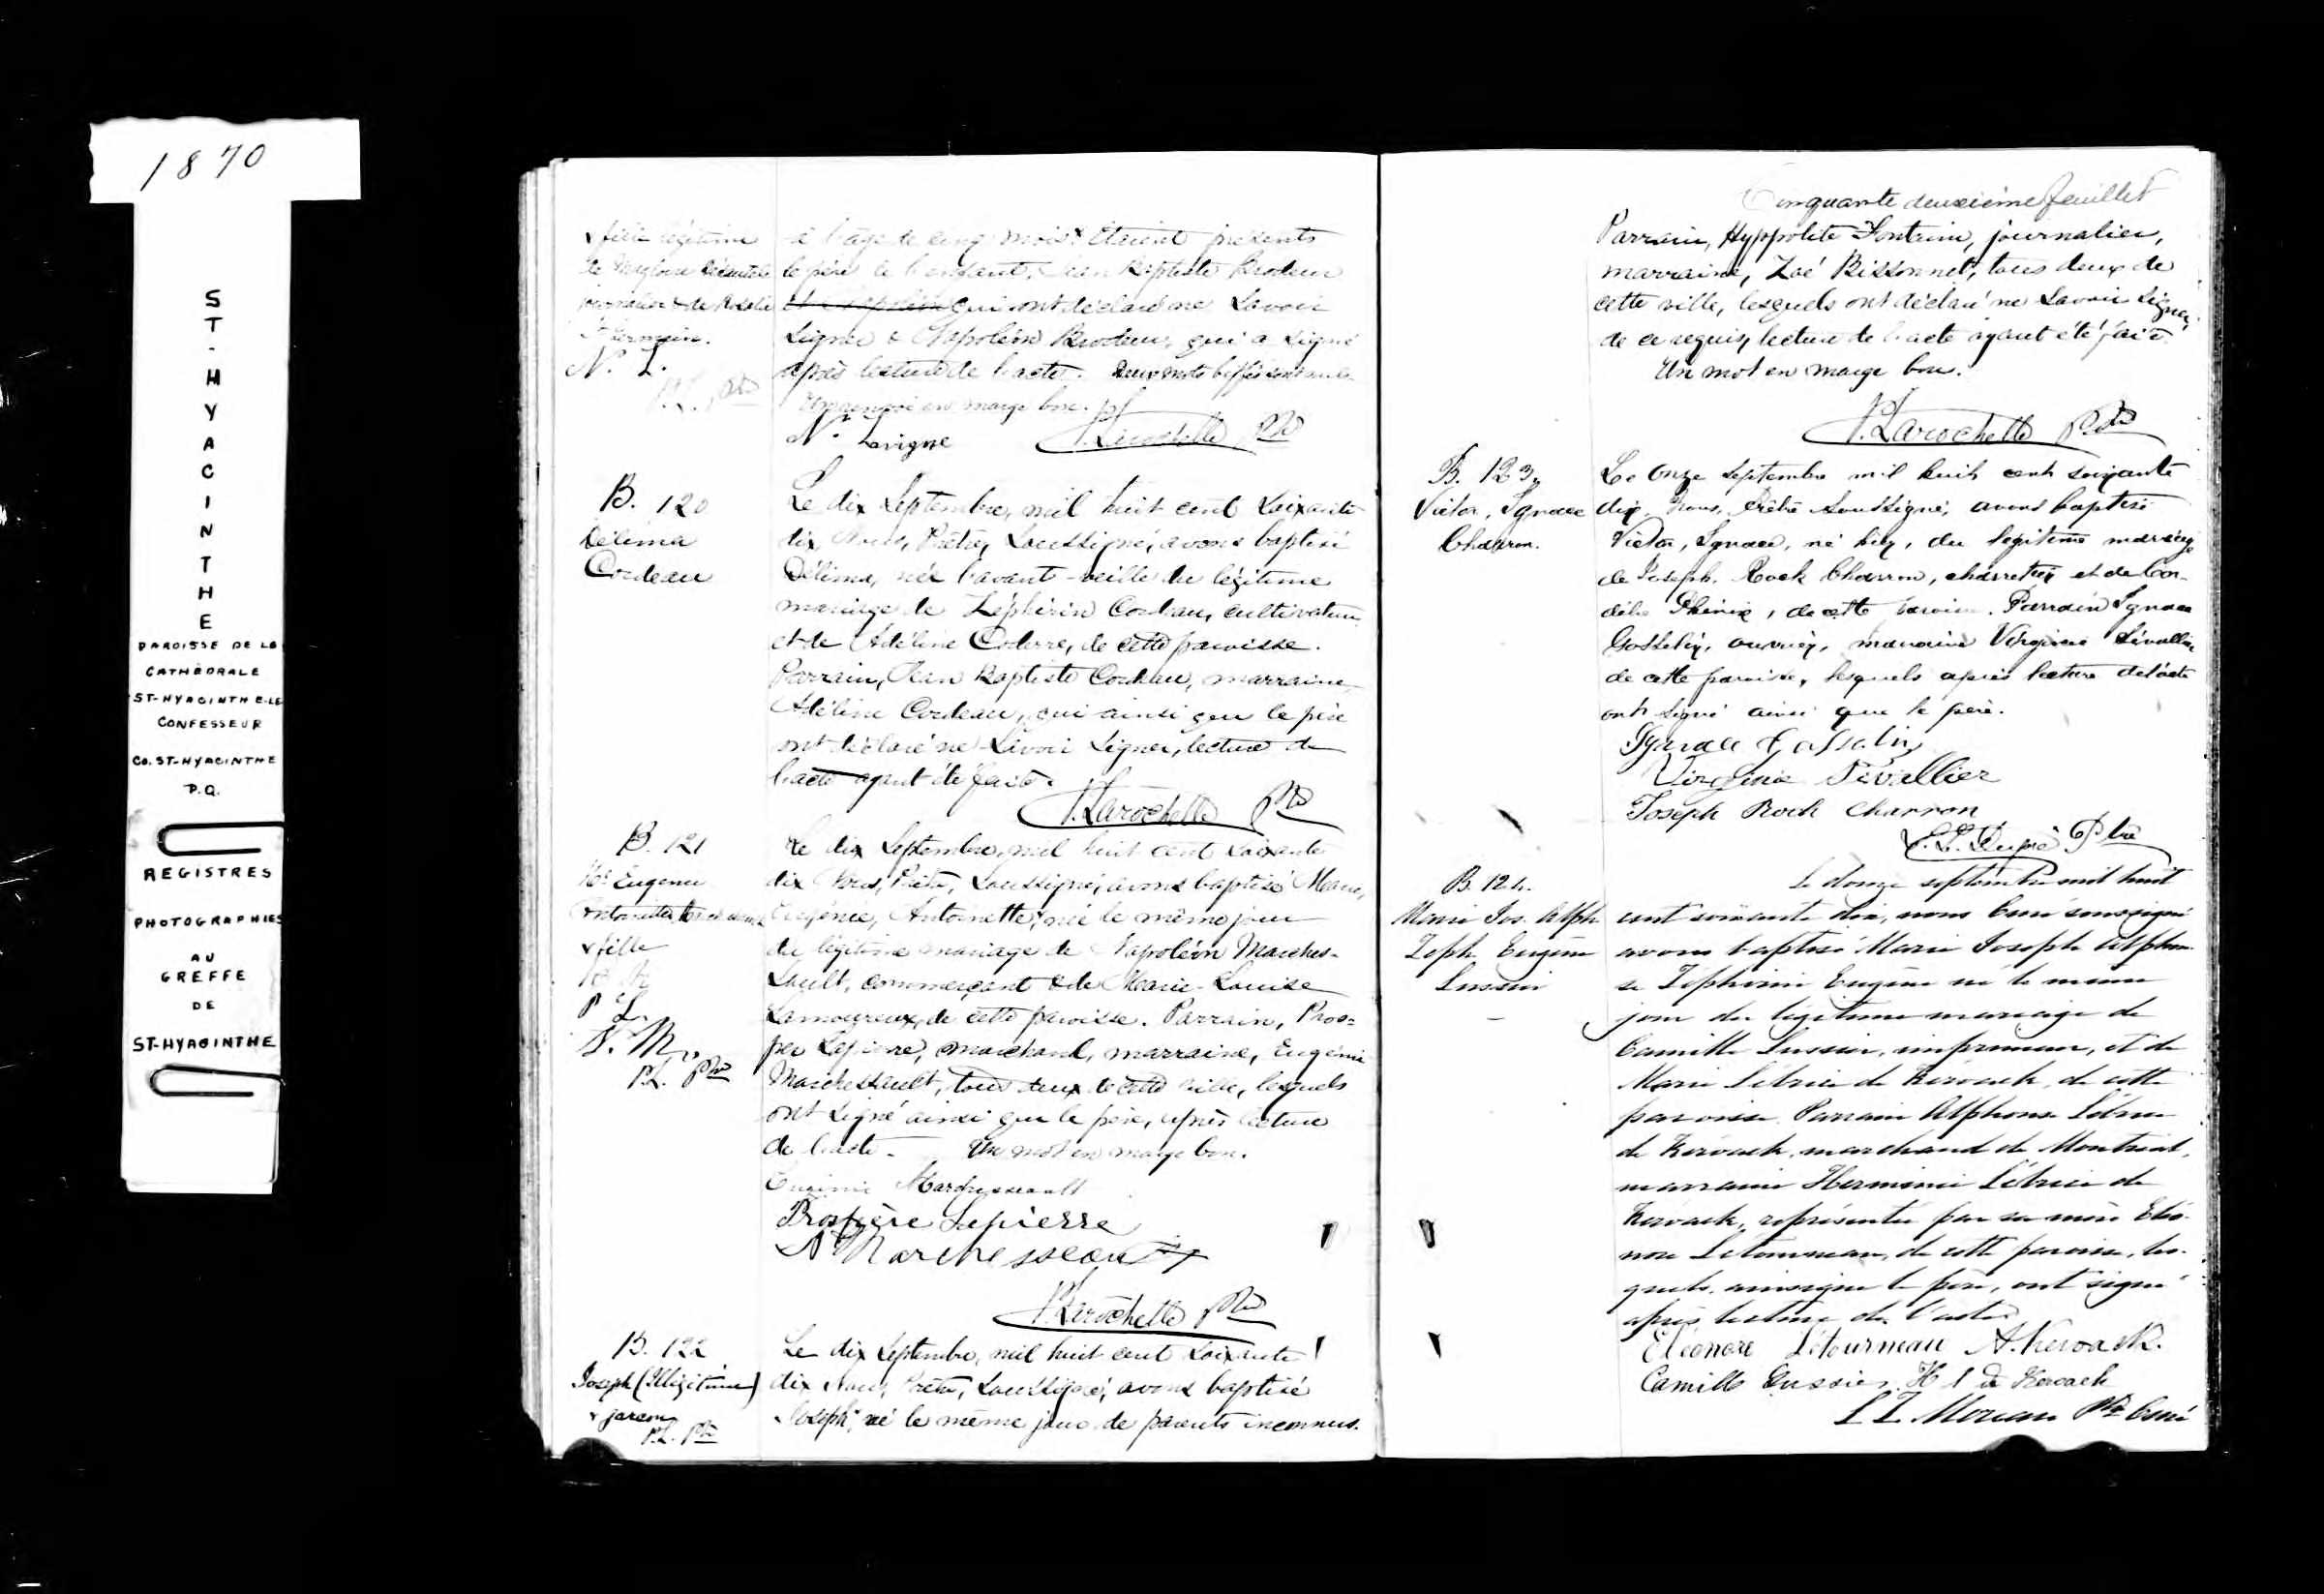 1870
ST-HYACINTHE
PAROISSE DE LA
CATHÉDRALE
ST-HYACINTHE-LE
CONFESSEUR
CO. ST-HYACINTHE
P.Q.
REGISTRES
PHOTOGRAPHIES
AU
GREFFE
DE
ST-HYACINTHE
x fille légitime
de
de Rosalie
St Germain.
N. L.
P.L. Ptre
à l'âge de cinq mois x Etaient présents
le père de l'enfant, Jean Baptiste Brodeur
qui ont déclaré ne savoir
signer & Napoléon Brodeur, qui a signé
après lecture de l'acte. Deux mots biffés sont nuls.
Un renvoi en marge bon.
N. Lavigne P. Larochelle Ptre
B. 120
Délima
Cordeau
Le dix Septembre, mil huit cent soixante
dix, Nous, Prêtre, Soussigné, avons baptisé
Délima, née l'avant-veille du légitime
mariage de Zéphirin Cordeau, cultivateur
et de Adéline Coderre, de cette paroisse.
Parrain, Jean Baptiste Cordeau, marraine,
Adéline Cordeau, qui ainsi que le père
ont déclaré ne savoir signer, lecture de
l'acte ayant été faite.
P. Larochelle Ptre
B. 121
Me Eugénie
Antoinette
x fille
P. L.
N. M.
P.L. Ptre
Le dix Septembre, mil huit cent soixante
dix Nous, Prêtre, Soussigné, avons baptisé Marie,
Eugénie, Antoinette, x née le même jour
du légitime mariage de Napoléon Marches-
sault, commerçant & de Marie-Louise
Lamoureux, de cette paroisse. Parrain, Pros=
per Lapierre, marchand, marraine, Eugénie
Marchessault, tous deux de cette ville, lesquels
ont signé ainsi que le père, après lecture
de l'acte. Un mot en marge bon.
Eugénie Marchesseault
Prospère Lapierre
N Marchesseault
P. Larochelle Ptre
B. 122
Joseph (Illégitime)
x garçon
P.L. Ptre
Le dix Septembre, mil huit cent soixante
dix Nous, Prêtre, Soussigné, avons baptisé
Joseph, x né le même jour de parents inconnus.
Cinquante deuxième feuillet
Parrain, Hyppolite Fontaine, journalier,
marraine, Zoé Bissonnet, tous deux de
cette ville, lesquels ont déclaré ne savoir signer,
de ce requis, lecture de l'acte ayant été faite.
Un mot en marge bon.
P. Larochelle Ptre
B. 123.
Victor, Ignace
Charron.
Le onze septembre mil huit cent soixante
dix, Nous, Prêtre Soussigné, avons baptisé
Victor, Ignace, né hier, du légitime mariage
de Joseph Rock Charron, charretier et de Cor-
délie Phénix, de cette paroisse. Parrain Ignace
Gosselin, ouvrier, marraine Virginie Lévallier
de cette paroisse, lesquels après lecture de l'acte
ont signé ainsi que le père.
Ignace Gosselin
Virginie Lévallier
Joseph Roch Charron
Dupré Ptre
B. 124.
Marie Jos. Alph.
Zéph. Eugène
Lussier
Le douze septembre mil huit
cent soixante dix, nous Curé soussigné
avons baptisé Marie Joseph Alphon-
se Zéphirin Eugène né le même
jour du légitime mariage de
Camille Lussier, imprimeur, et de
Marie Lebrice de Kéroack, de cette
paroisse. Parrain Alphonse Lebrice
de Keroack, marchand de Montréal,
marraine Herminie Lebrice de
Keroack, représentée par sa mère Eléo-
nore Letourneau, de cette paroisse, les-
quels, ainsi que le père, ont signé
après lecture de l'acte.
Eléonore Létourneau A. Keroack.
Camille Lussier H L de Keroack
L Z. Moreau Ptre Curé